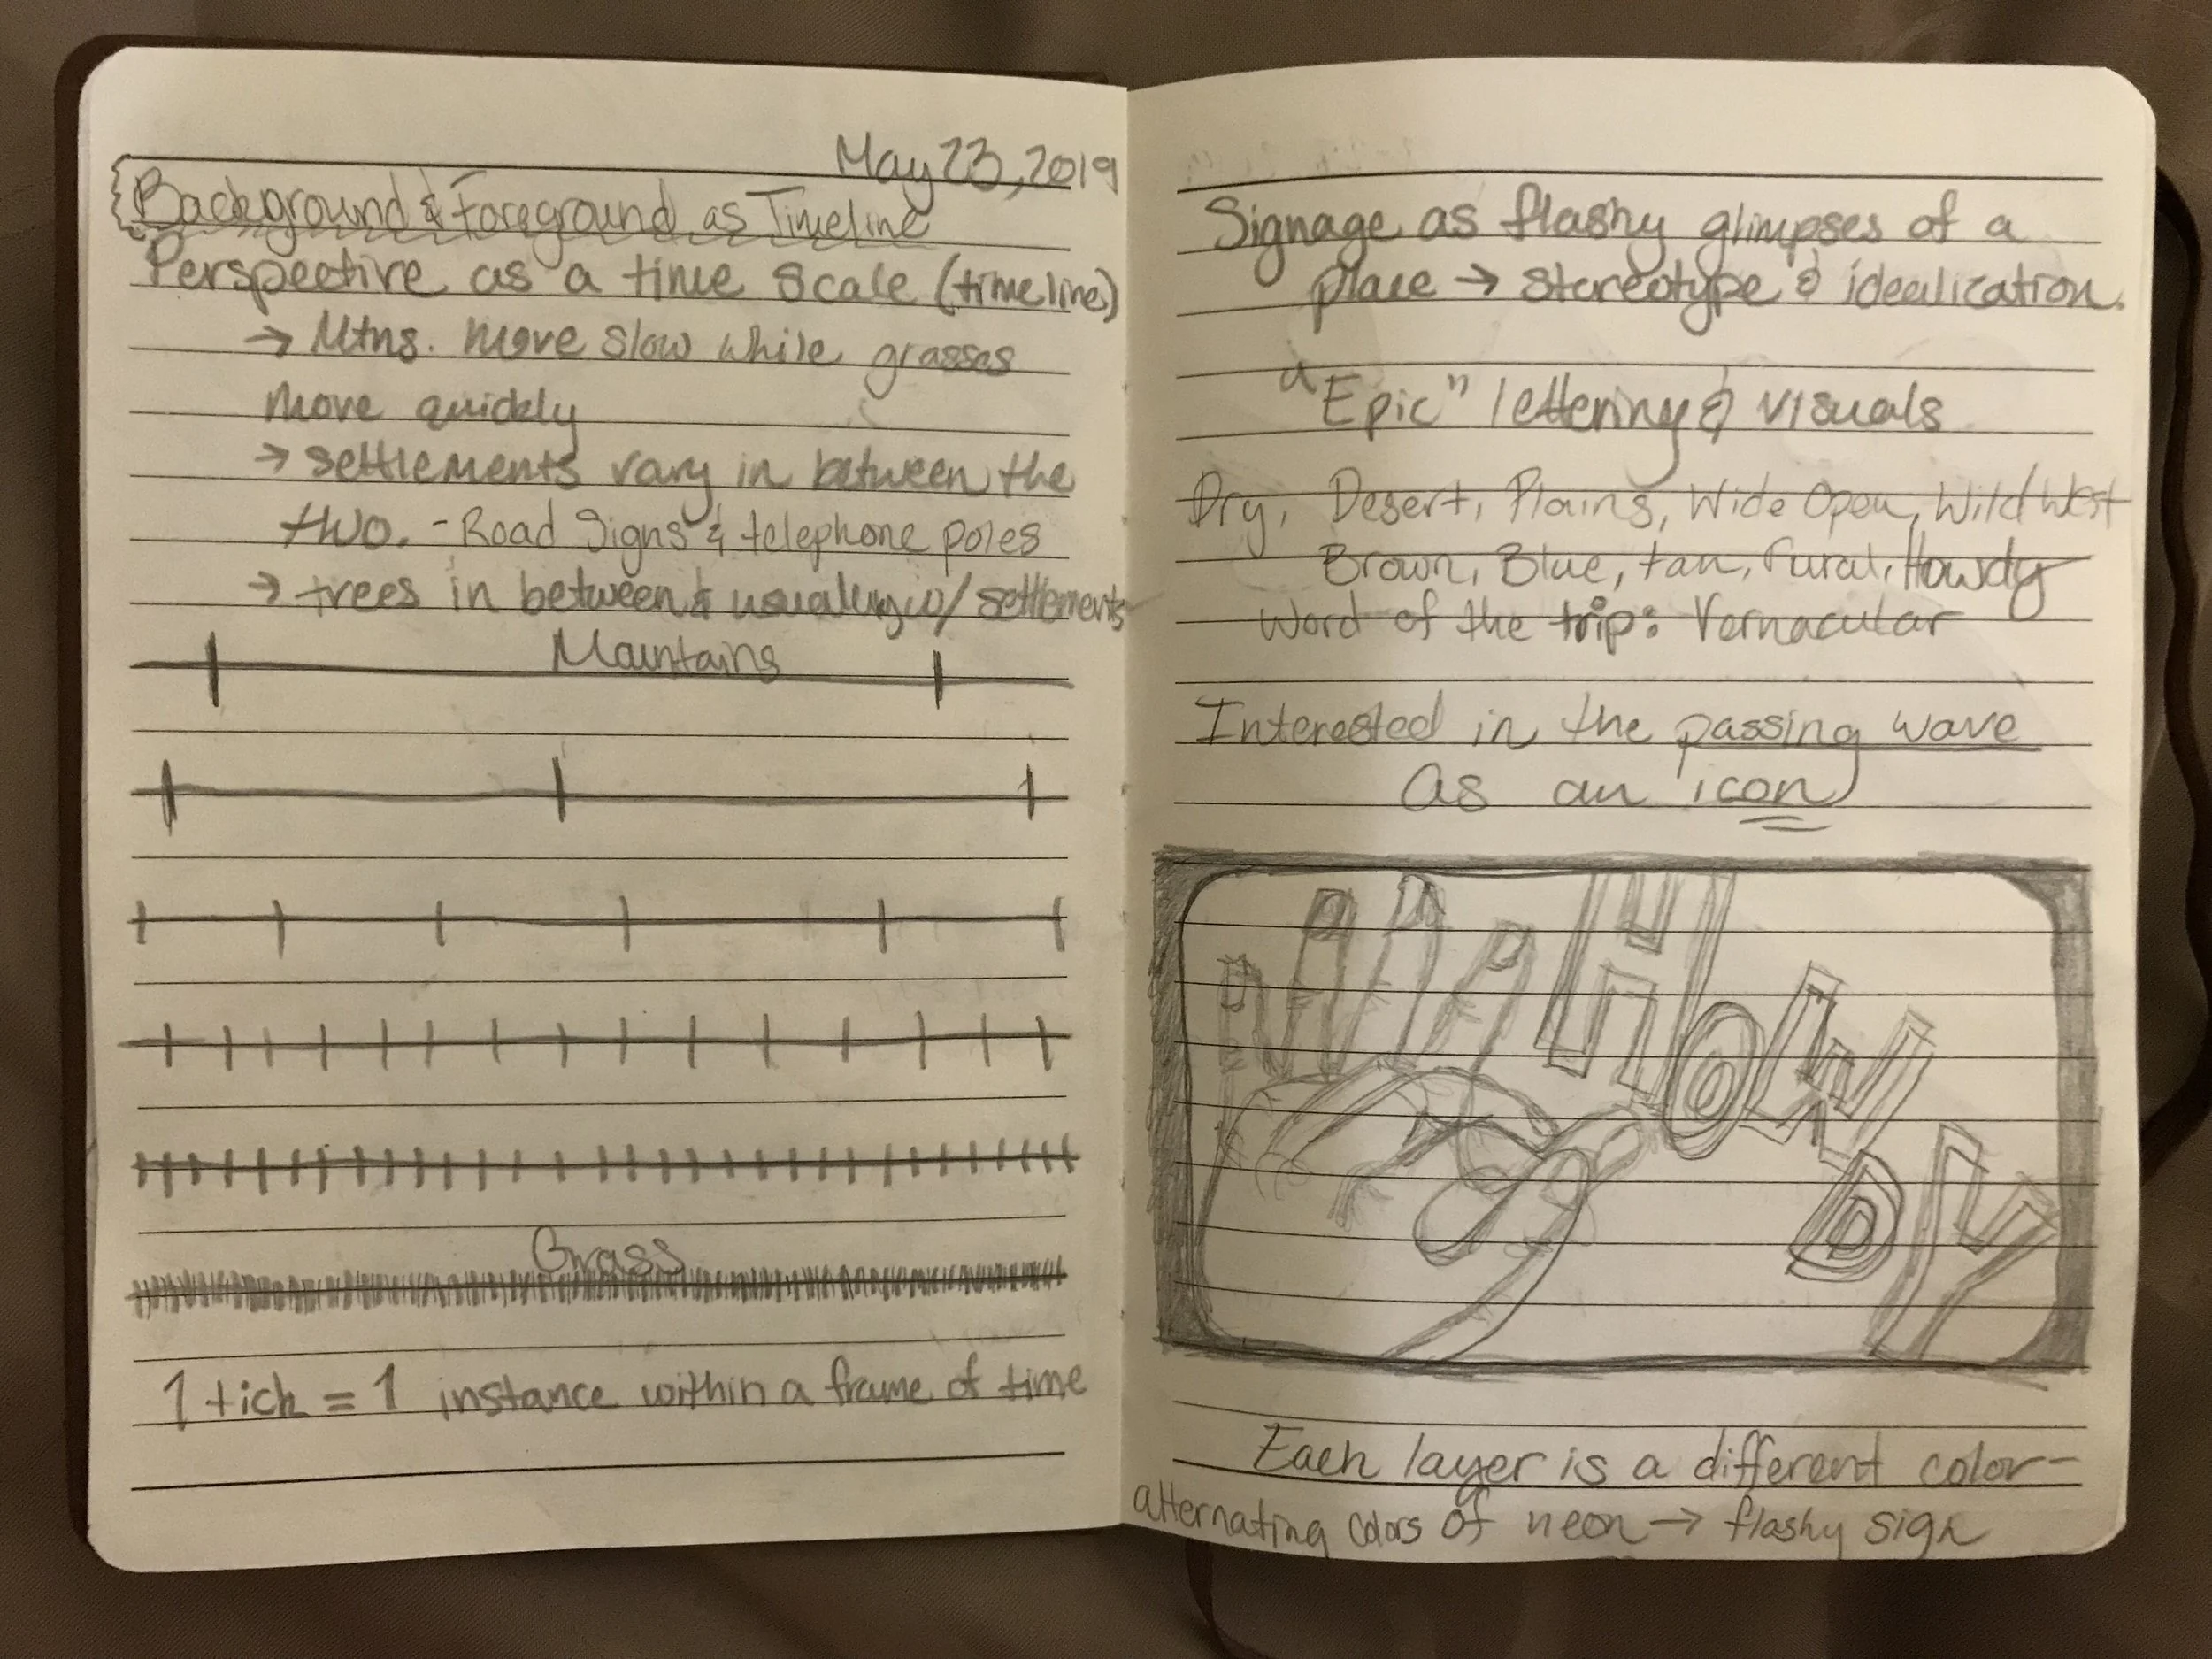 May 23, 2019
Background & Foreground as Timeline
Perspective as a time scale (timeline)
→ Mtns. move slow while grasses
move quickly
→ settlements vary in between the
two. - Road Signs & telephone poles
→ trees in between & usually w/ settlements
Mountains
Grass
1 tick = 1 instance within a frame of time
Signage as flashy glimpses of a
place → stereotype & idealization.
"Epic" lettering & visuals
Dry, Desert, Plains, Wide Open, Wild West
Brown, Blue, tan, rural, Howdy
Word of the trip: Vernacular
Interested in the passing wave
as an icon
HOWDY
Each layer is a different color -
alternating colors of neon → flashy sign